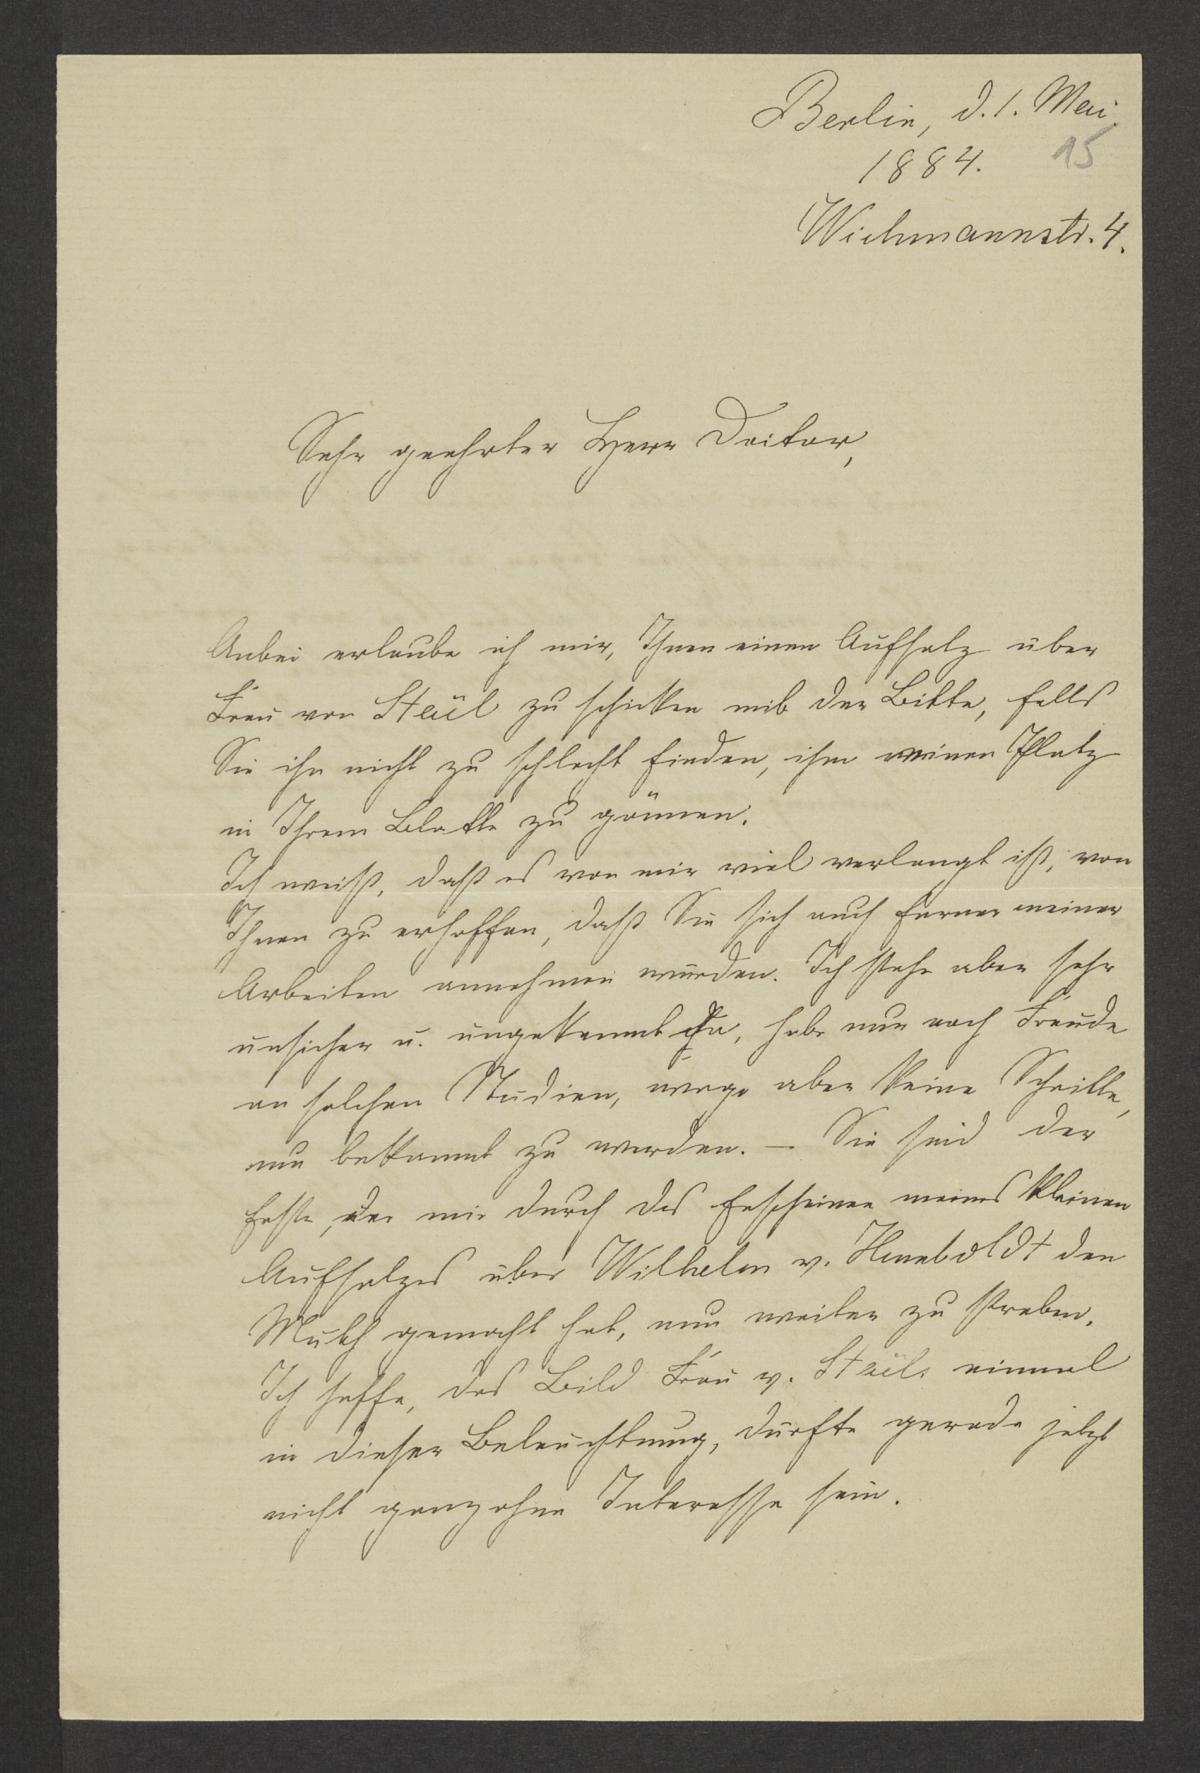 Berlin, d. 1. Mai
1884.
15
Wichmannstr. 4.
Sehr geehrter Herr Doktor,
Anbei erlaube ich mir, Ihnen einen Aufsatz über
Frau von Staël zu schicken mit der Bitte, falls
Sie ihn nicht zu schlecht finden, ihm einen Platz
in Ihrem Blatte zu gönnen.
Ich weiß, daß es von mir viel verlangt ist, von
Ihnen zu erhoffen, daß Sie sich auch ferner meiner
Arbeiten annehmen würden. Ich stehe aber sehr
unsicher u. ungekannt da, habe nur noch Freude
an solchen Studien, wage aber keine Schritte,
um bekannt zu werden. – Sie sind der
Erste, der mir durch das Erscheinen meines kleinen
Aufsatzes über Wilhelm v. Humboldt den
Muth gemacht hat, nun weiter zu streben.
Ich hoffe, das Bild Frau v. Staëls einmal
in dieser Beleuchtung, dürfte gerade jetzt
nicht ganz ohne Interesse sein.